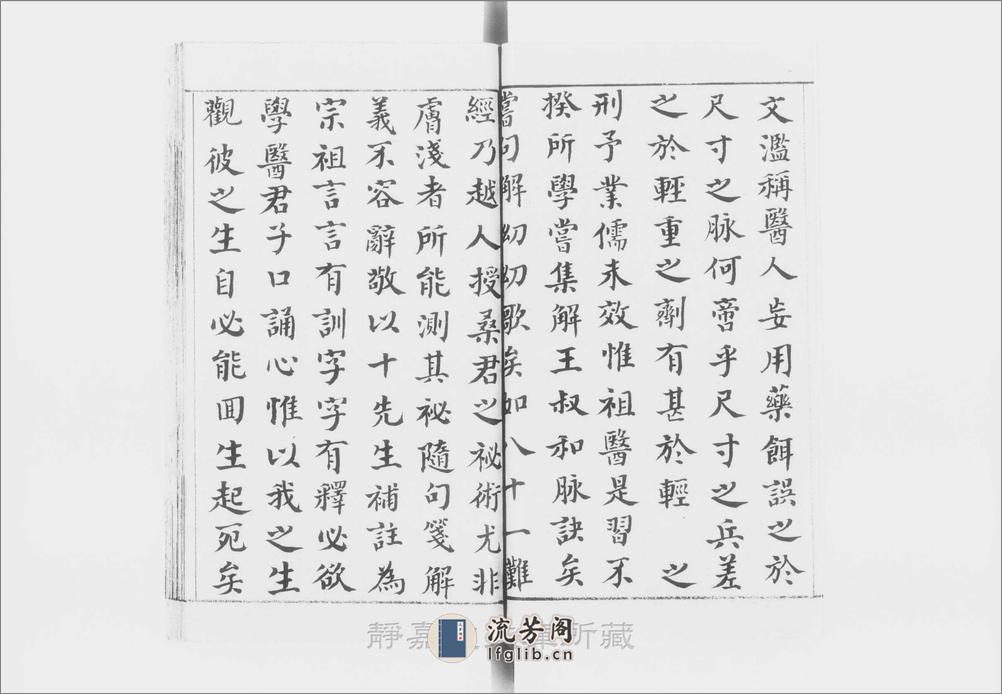 文濫稱醫人妄用藥餌誤之於
尺寸之脉何啻乎尺寸之兵差
之於輕重之劑有甚於輕 之
刑予業儒未效惟祖醫是習不
揆所學嘗集解王叔和脉訣矣
嘗句解幼幼歌矣如八十一難
經乃越人授桑君之祕術尤非
膚淺者所能測其祕隨句箋解
義不容辭敬以十先生補註為
宗祖言言有訓字字有釋必欲
學醫君子口誦心惟以我之生
觀彼之生自必能囬生起死矣
靜嘉 所藏
流芳阁
lfglib.cn